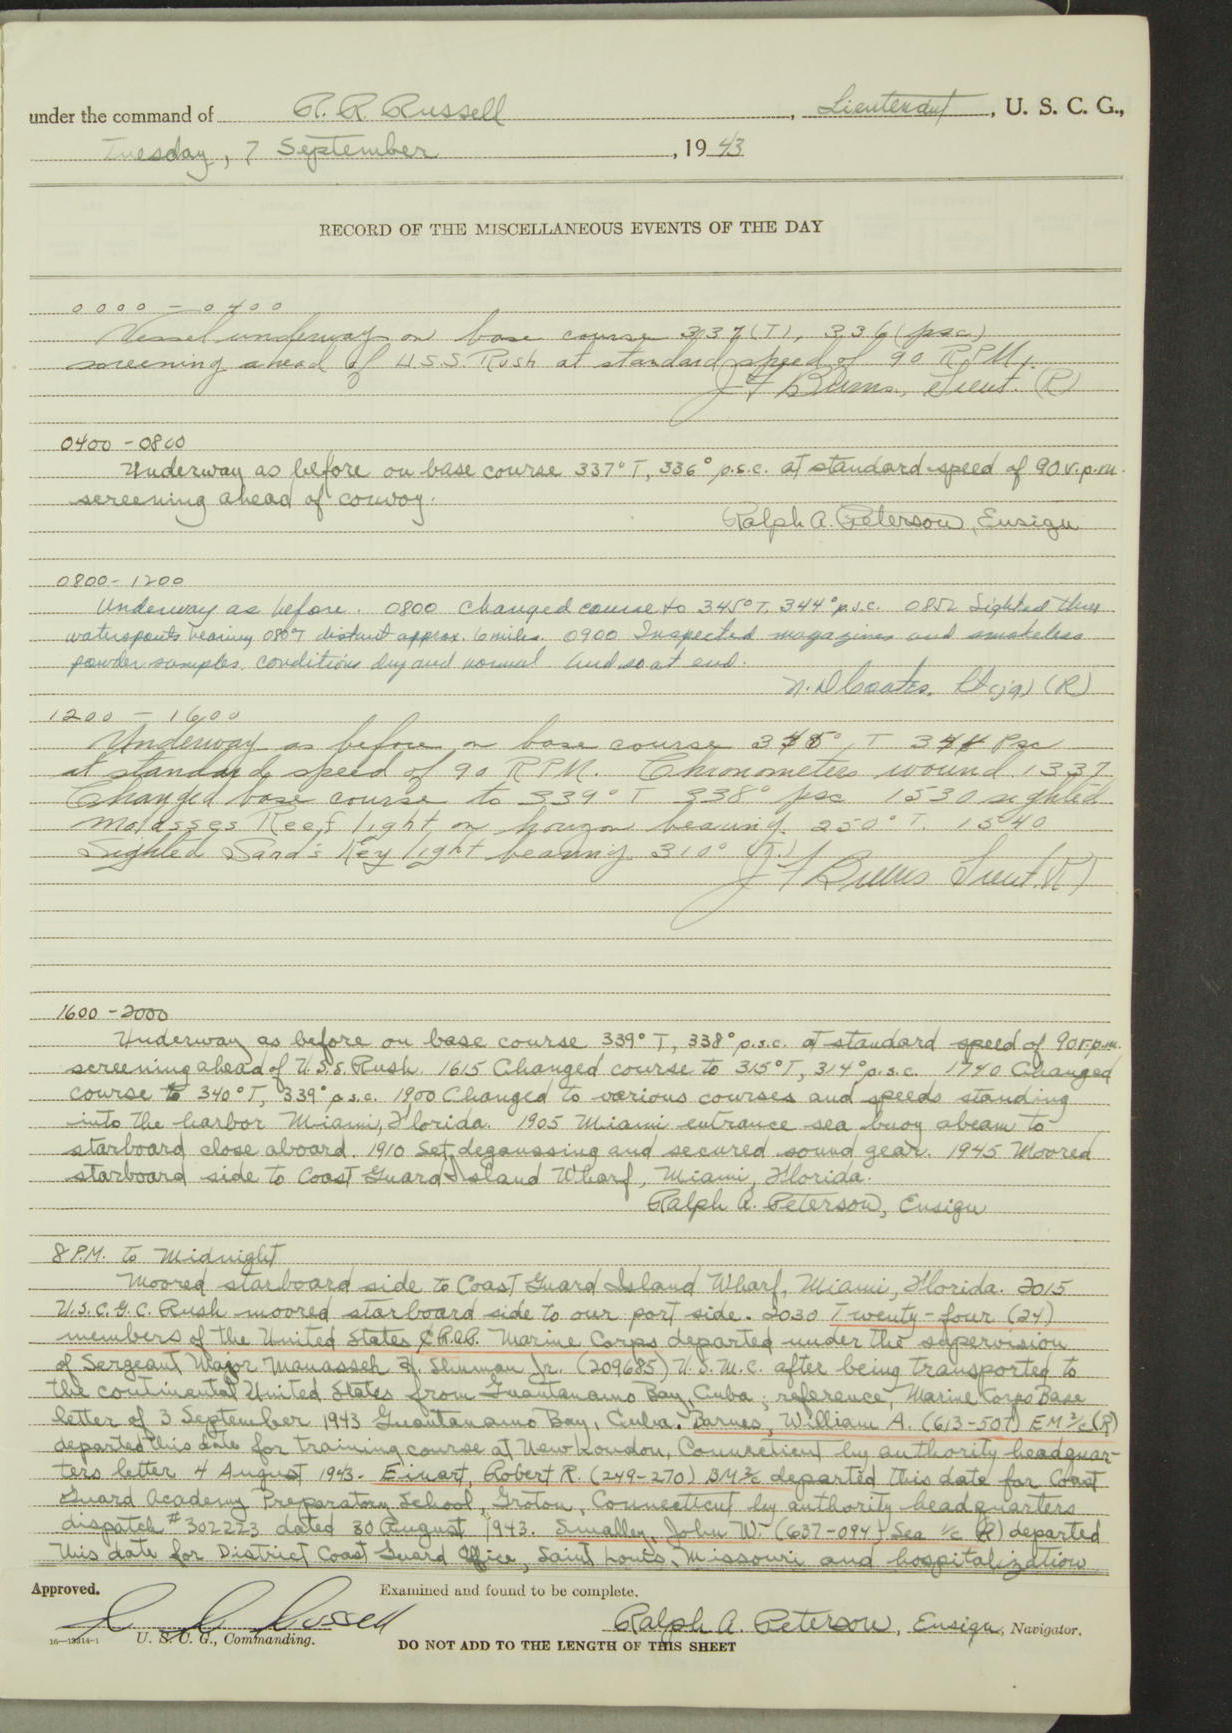 under the command of R. R. Russell, Lieutenant, U. S. C. G.,
Tuesday, 7 September, 1943
RECORD OF THE MISCELLANEOUS EVENTS OF THE DAY
0000 - 0400
Vessel underway on base course 337 (T), 336 (psc)
screening ahead of U.S.S. Rush at standard speed of 90 R.P.M.
J F Burns, Lieut. (R)
0400 - 0800
Underway as before on base course 337° T, 336° p.s.c. at standard speed of 90 r.p.m.
screening ahead of convoy.
Ralph A. Peterson, Ensign
0800 - 1200
Underway as before. 0800 Changed course to 345° T. 344° p.s.c. 0852 Sighted three
waterspouts bearing 080°T distant approx. 6 miles. 0900 Inspected magazines and smokeless
powder samples. conditions dry and normal And so at end.
N. D Coates. Lt(jg) (R)
1200 - 1600
Underway as before on base course 345°, T 344 Psc
at standard speed of 90 R.P.M. Chronometers wound. 1337
Changed base course to 339° T 338° psc 1530 sighted
Molasses Reef light on horizon bearing 250° T. 1540
Sighted Sand's Key light bearing 310° (T.)
J F Burns Lieut. (R)
1600 - 2000
Underway as before on base course 339° T, 338° p.s.c. at standard speed of 90 r.p.m.
screening ahead of U.S.S. Rush. 1615 Changed course to 315° T, 314° p.s.c. 1740 Changed
course to 340° T, 339° p.s.c. 1900 Changed to various courses and speeds standing
into the harbor Miami, Florida. 1905 Miami entrance sea buoy abeam to
starboard close aboard. 1910 Set degaussing and secured sound gear. 1945 Moored
starboard side to Coast Guard Island Wharf, Miami, Florida.
Ralph A. Peterson, Ensign
8 P.M. to Midnight
Moored starboard side to Coast Guard Island Wharf, Miami, Florida. 2015
U.S.C.G.C. Rush moored starboard side to our port side. 2030 Twenty-four (24)
members of the United States R.A.P. Marine Corps departed under the supervision
of Sergeant Major Manasseh Shinman Jr. (209685) U.S.M.C. after being transported to
the continental United States from Guantanamo Bay, Cuba; reference, Marine Corps Base
letter of 3 September 1943 Guantanamo Bay, Cuba. Barnes, William A. (613-507) EM 3/c (R)
departed this date for training course at New London, Connecticut by authority headquar-
ters letter 4 August 1943. Einart, Robert R. (249-270) BM 2/c departed this date for Coast
Guard Academy Preparatory School, Groton, Connecticut by authority headquarters
dispatch # 302223 dated 30 August 1943. Smalley, John W. (637-094) Sea 1/c (R) departed
this date for District Coast Guard Office, Saint Louis, Missouri and hospitalization
Approved. Examined and found to be complete.
R R Russell Ralph A. Peterson, Ensign, Navigator.
16—13314-1 U. S. C. G., Commanding.
DO NOT ADD TO THE LENGTH OF THIS SHEET